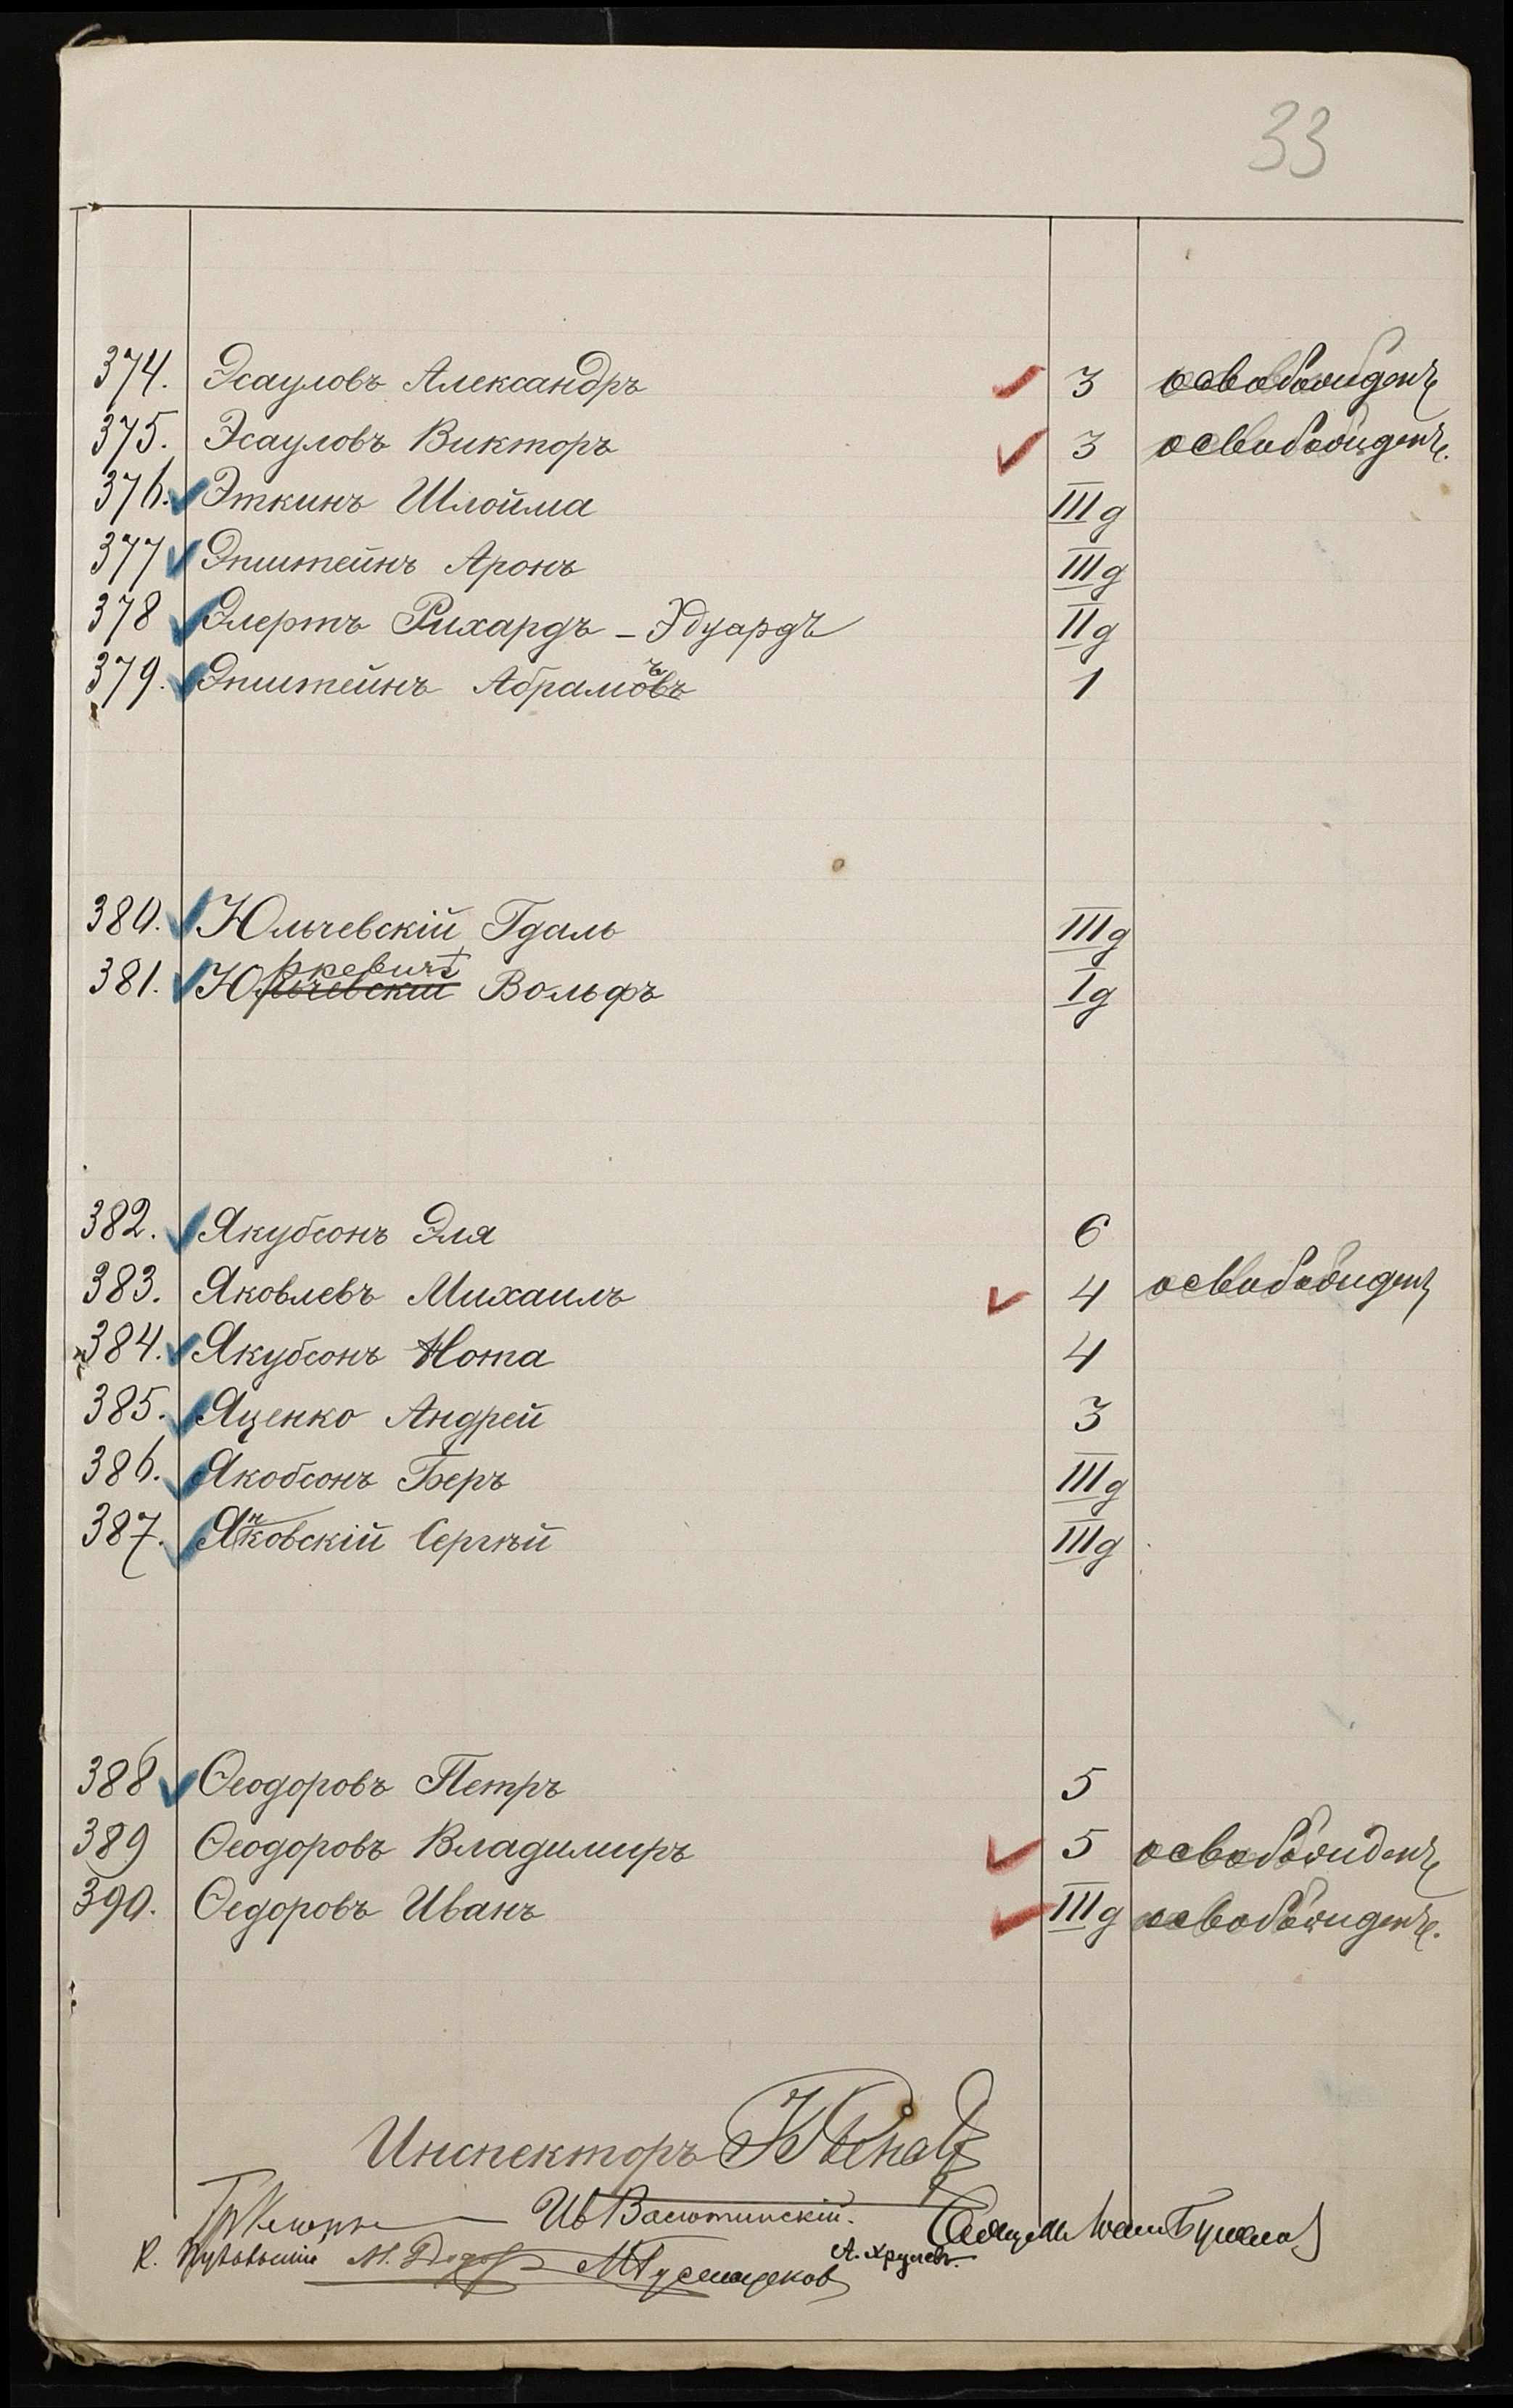 33
374. Эсауловъ Александръ 3 освобожденъ
375. Эсауловъ Викторъ 3 освобожденъ.
376. Эткинъ Шлойма III д
377 Эпштейнъ Аронъ III д
378 Элертъ Рихардъ - Эдуардъ II д
379. Эпштейнъ Абрамъ 1
380. Юльчевскій Гдаль III д
381. Юркевичъ Вольфъ I д
382. Якубсонъ Эля 6
383. Яковлевъ Михаилъ 4 освобожденъ
384. Якубсонъ Нота 4
385. Яценко Андрей 3
386. Якобсонъ Беръ III д
387. Янковскій Сергѣй III д
388 Ѳеодоровъ Петръ 5
389 Ѳеодоровъ Владимиръ 5 освобожденъ
390. Ѳедоровъ Иванъ III д освобожденъ.
Инспекторъ
Ив Васютинскій.
А. Хрулевъ.